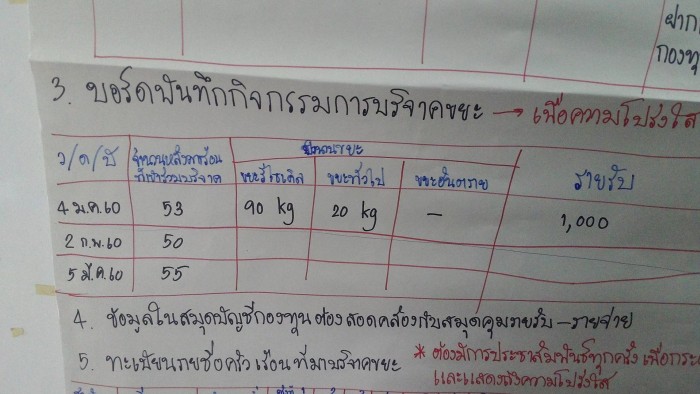 ฝาก
กองทุ
3. บอร์ดบันทึกกิจกรรมการบริจาคขยะ → เพื่อความโปร่งใส
ว/ด/ป จำนวนหลังคาเรือน ที่เข้าร่วมบริจาค ปริมาณขยะ รายรับ
ขยะรีไซเคิล ขยะทั่วไป ขยะอันตราย
4 ม.ค.60 53 90 kg 20 kg – 1,000
2 ก.พ.60 50
5 มี.ค.60 55
4. ข้อมูลในสมุดบัญชีกองทุน ต้องสอดคล้องกับสมุดคุมรายรับ – รายจ่าย
5. ทะเบียนรายชื่อครัวเรือนที่มาบริจาคขยะ * ต้องมีการประชาสัมพันธ์ทุกครั้ง เพื่อกระ
และแสดงถึงความโปร่งใส